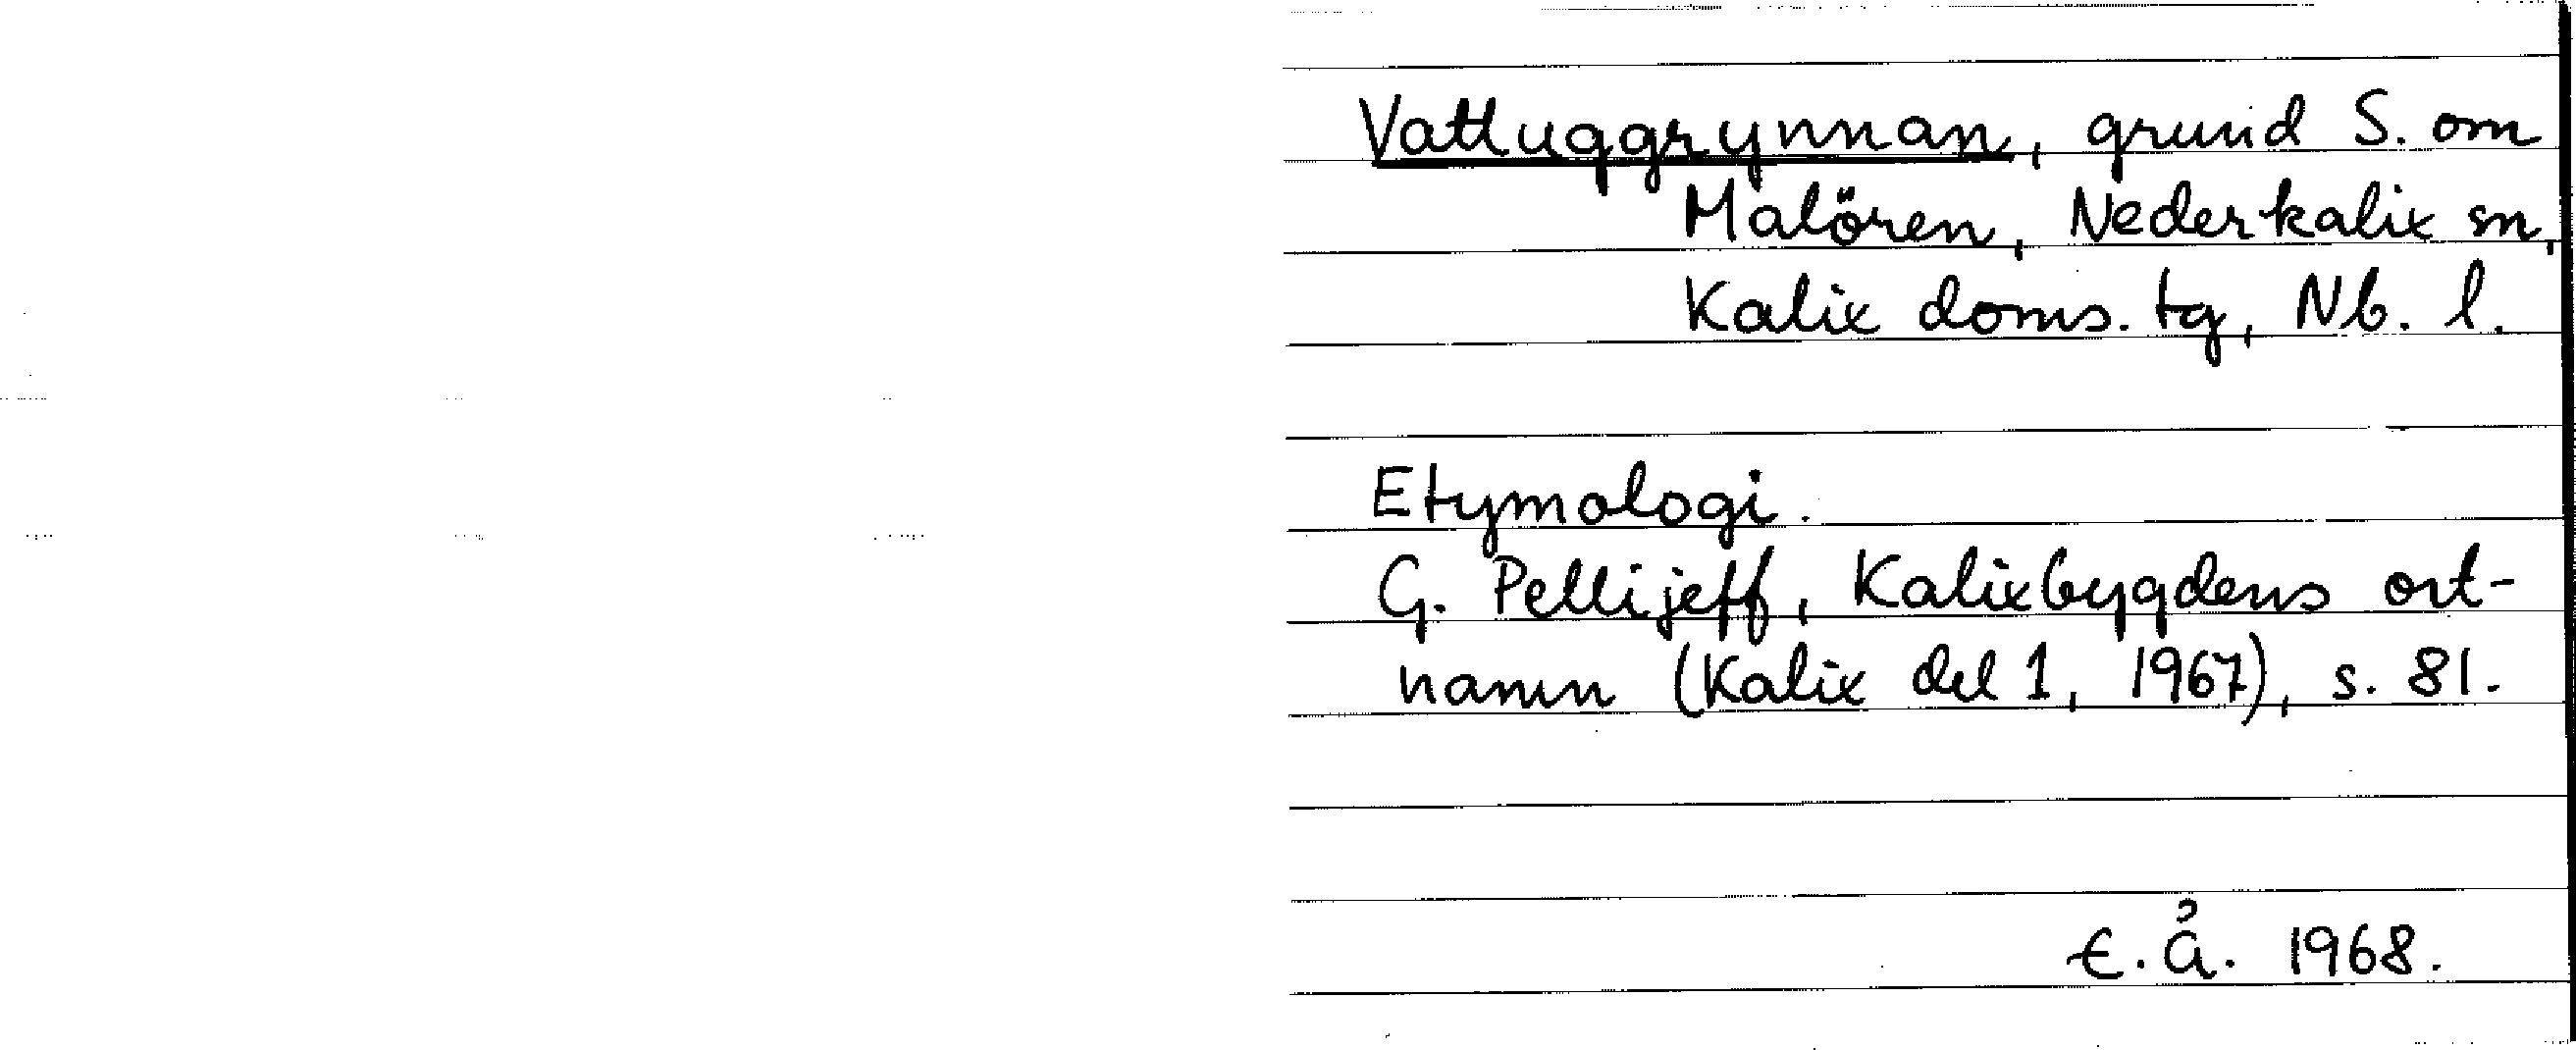 Vattuggrynnan, grund S. om
Malören, Nederkalix sn,
Kalix doms. tg, Nb. l.
Etymologi.
G. Pellijeff, Kalixbygdens ort-
namn (Kalix del 1, 1967), s. 81.
E. Å. 1968.